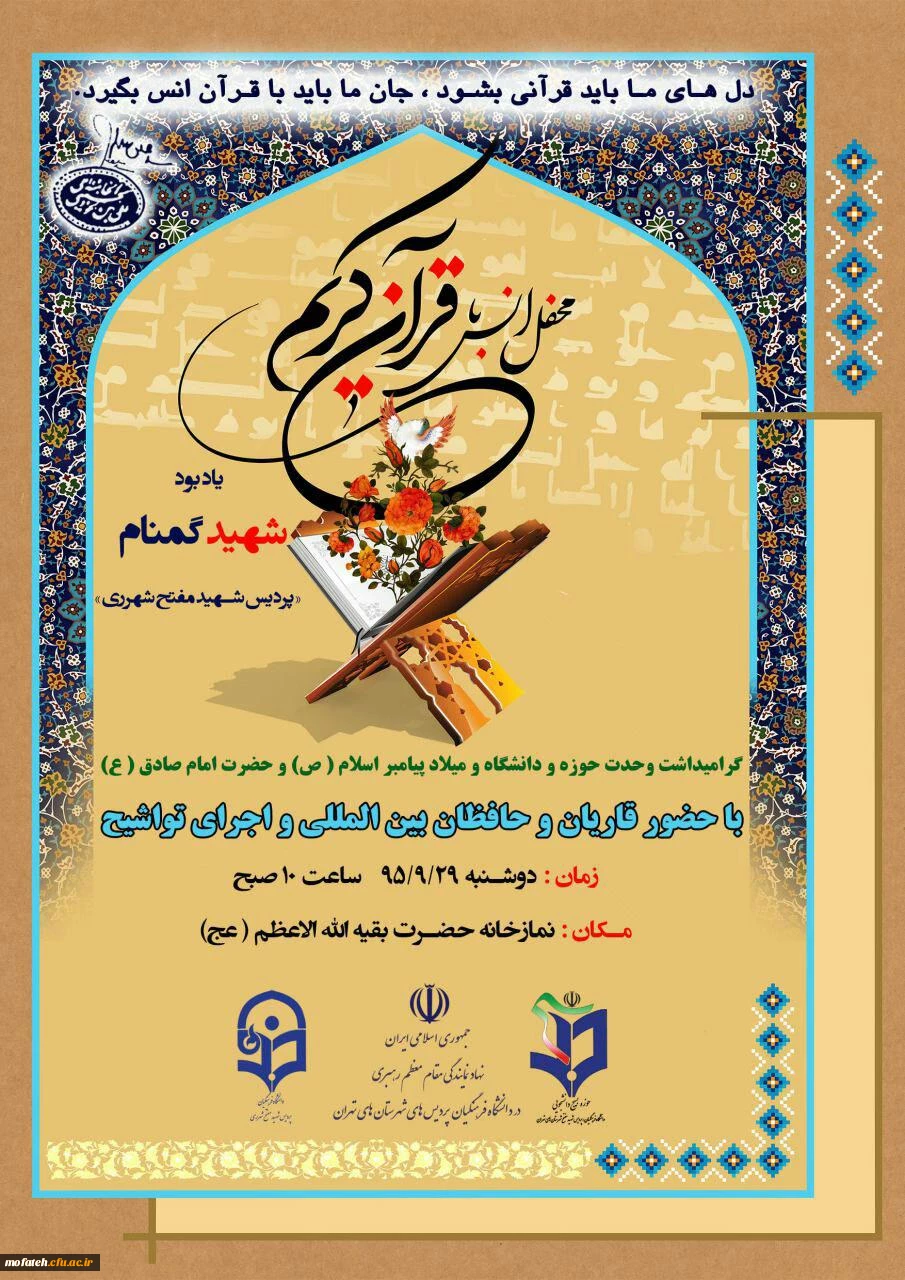 دل هـای مـا باید قرآنی بشـود ، جان ما باید با قـرآن انس بگیرد.
محفل انس با قرآن کریم
یادبود
شهید گمنام
«پردیس شـهید مفتح شهرری»
گرامیداشت وحدت حوزه و دانشگاه و میلاد پیامبر اسلام ( ص) و حضرت امام صادق ( ع)
با حضور قاریان و حافظان بین المللی و اجرای تواشیح
زمان : دوشـنبه ۹۵/۹/۲۹ ساعت ۱۰ صبح
مـکان : نمازخانه حضـرت بقیه الله الاعظم ( عج)
جمهوری اسلامی ایران
نهاد نمایندگی مقام معظم رهبری
در دانشگاه فرهنگیان پردیس های شهرستان های تهران
حوزه بسیج دانشجویی
دانشگاه فرهنگیان
پردیس شهید مفتح شهرری
mofateh.cfu.ac.ir